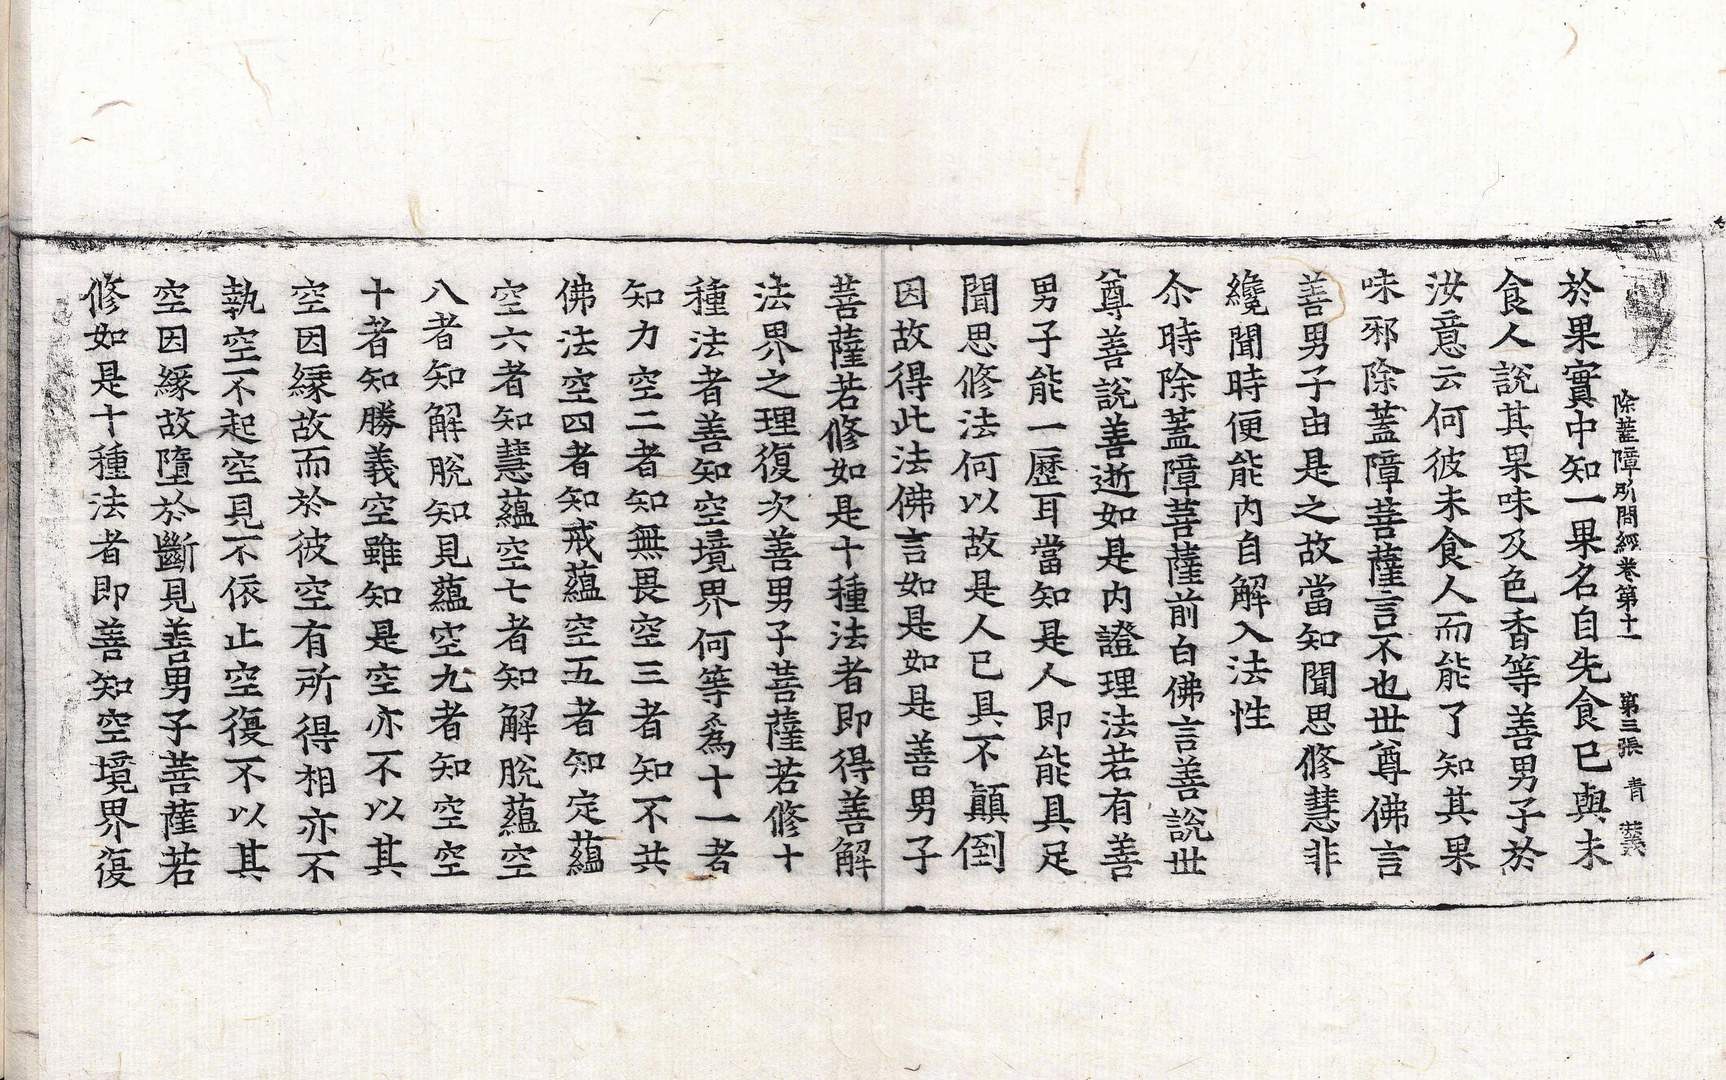 除蓋障所問經卷第十一 第三張 青
於果實中知一果名自先食已與未
食人說其果味及色香等善男子於
汝意云何彼未食人而能了知其果
味邪除蓋障菩薩言不也世尊佛言
善男子由是之故當知聞思修慧非
纔聞時便能內自解入法性
尒時除蓋障菩薩前白佛言善說世
尊善說善逝如是內證理法若有善
男子能一歷耳當知是人即能具足
聞思修法何以故是人已具不顚倒
因故得此法佛言如是如是善男子
菩薩若修如是十種法者即得善解
法界之理復次善男子菩薩若修十
種法者善知空境界何等爲十一者
知力空二者知無畏空三者知不共
佛法空四者知戒蘊空五者知定蘊
空六者知慧蘊空七者知解脫蘊空
八者知解脫知見蘊空九者知空空
十者知勝義空雖知是空亦不以其
空因緣故而於彼空有所得相亦不
執空不起空見不依止空復不以其
空因緣故墮於斷見善男子菩薩若
修如是十種法者即善知空境界復